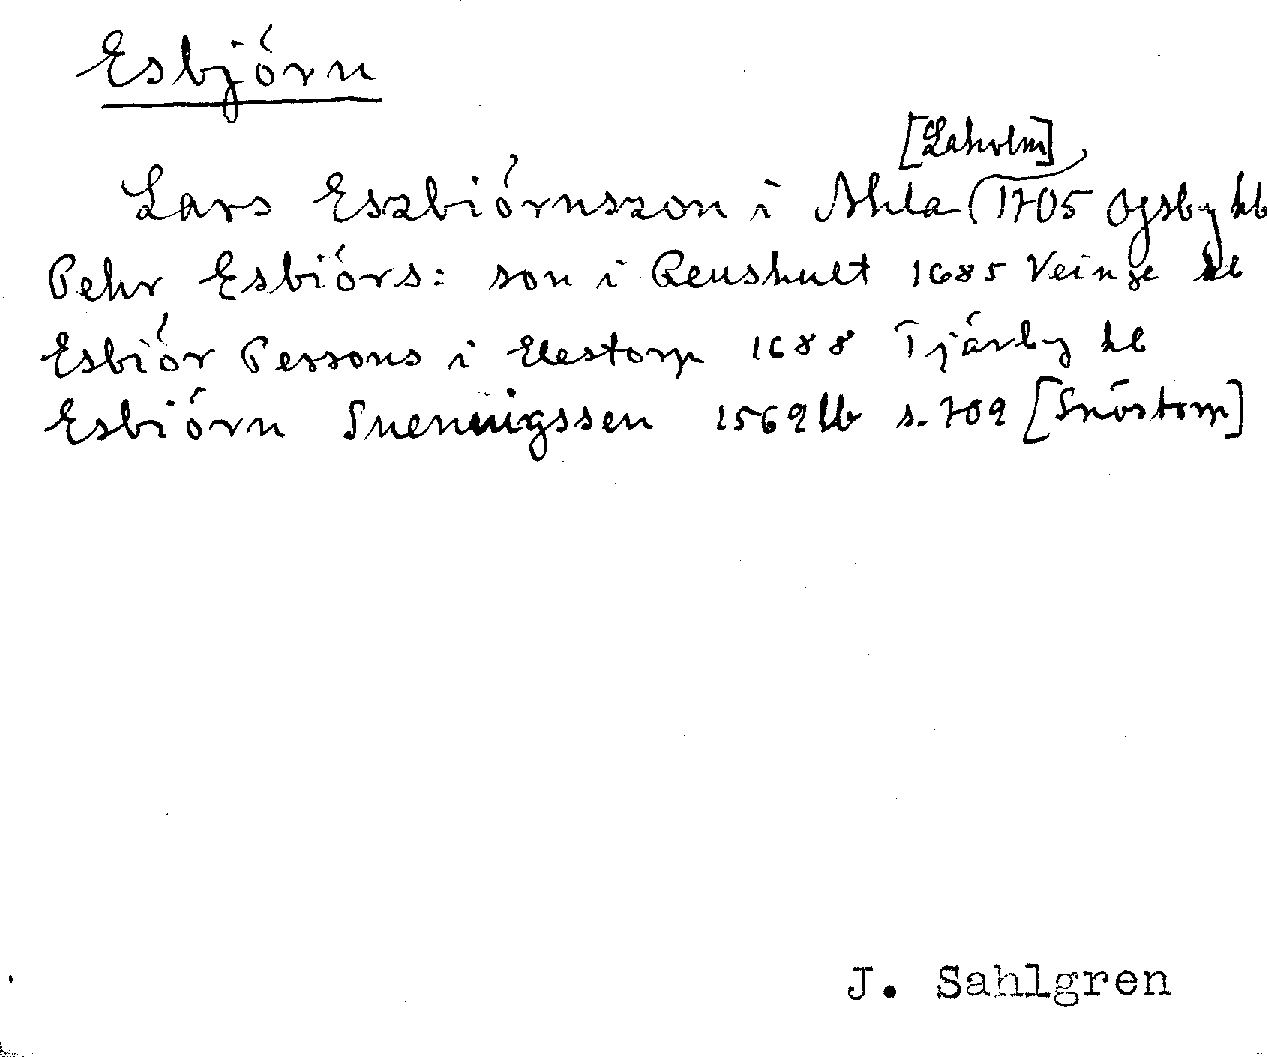 Esbjörn
[Laholm]
Lars Eszbiörnszon i Ahla (1705 Ysby kb
Pehr Esbiörs: son i Reushult 1685 Veinge kb
Esbiör Perssons i Elestorp 1688 Tjärby kb
Esbiörn Suenningssen 1569 lb s. 709 [Snöstorp]
J. Sahlgren